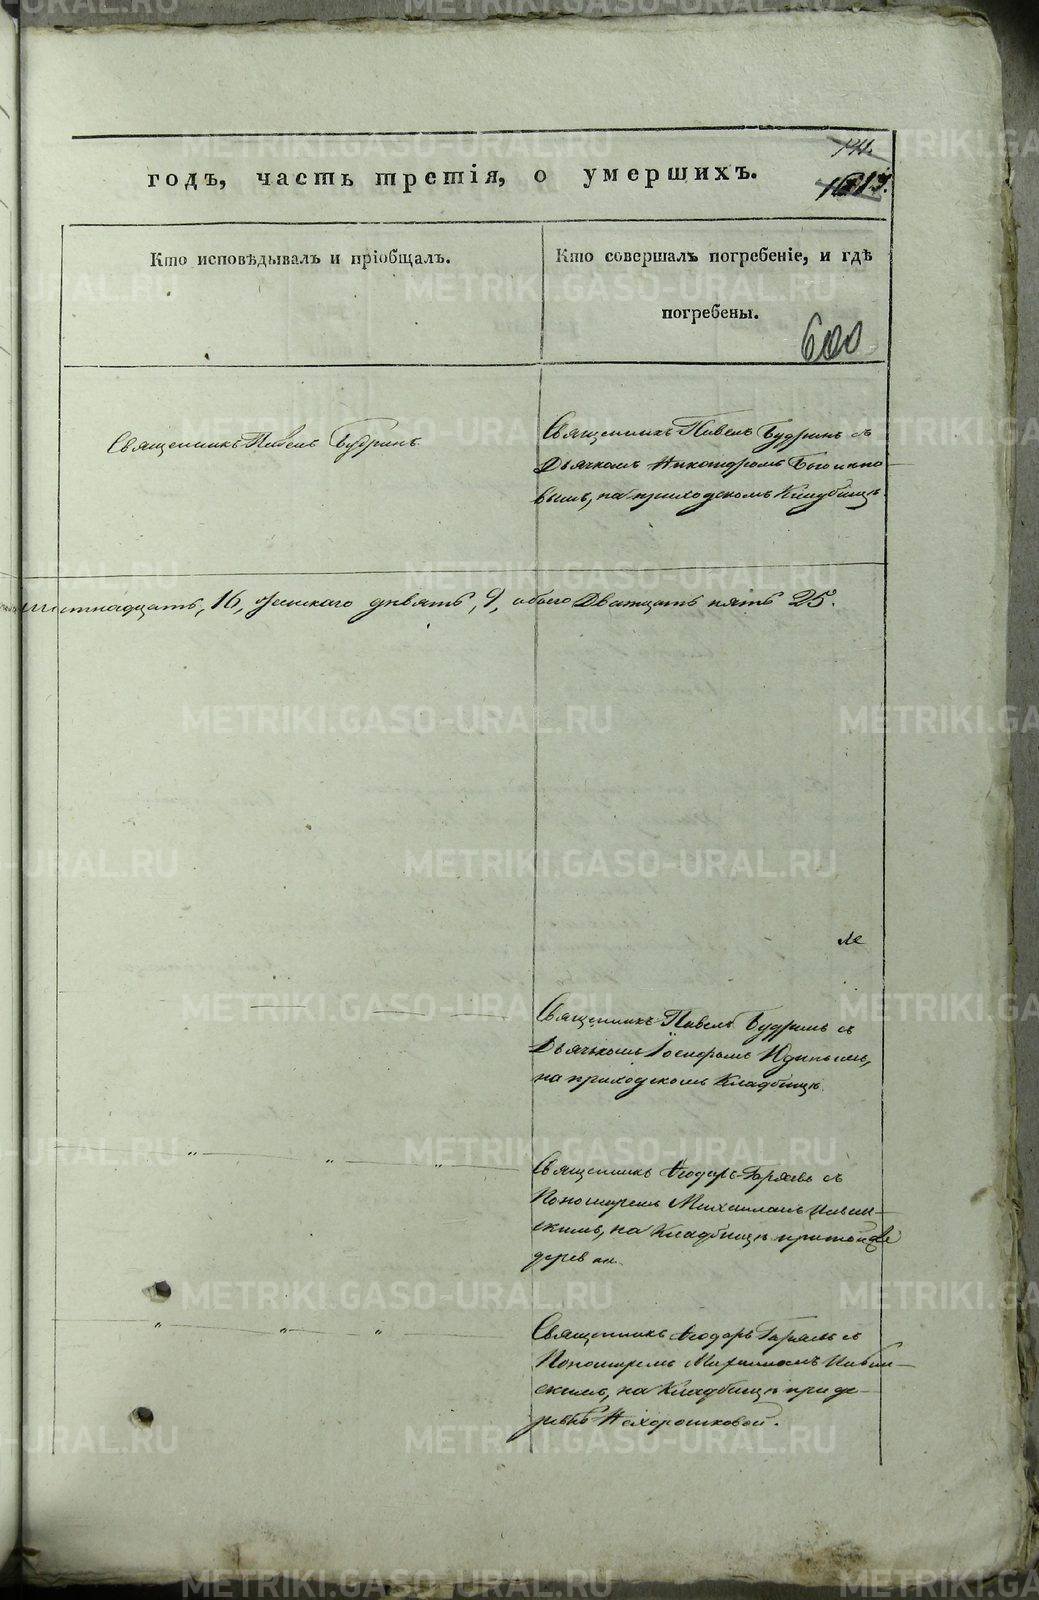 годъ, часть третія, о умершихъ.
Кто исповѣдывалъ и пріобщалъ.
Кто совершалъ погребеніе, и гдѣ
погребены.
600
Священникъ Павелъ Будринъ
Священникъ Павелъ Будринъ съ
Дьячкомъ Никандромъ
вымъ, на приходскомъ Кладбищѣ.
шестнадцать, 16, женскаго девять, 9, обоего Двадцать пять 25.
Священникъ Павелъ Будринъ съ
Дьячкомъ Іосифомъ Юдинымъ,
на приходскомъ Кладбищѣ.
Священникъ Ѳеодоръ Гаряевъ съ
Пономаремъ Михаиломъ
скимъ, на Кладбищѣ при той же
деревни.
Священникъ Ѳеодоръ Гаряевъ съ
Пономаремъ Михаиломъ
скимъ, на Кладбищѣ при де-
ревнѣ Нехорошковой.
METRIKI.GASO-URAL.RU